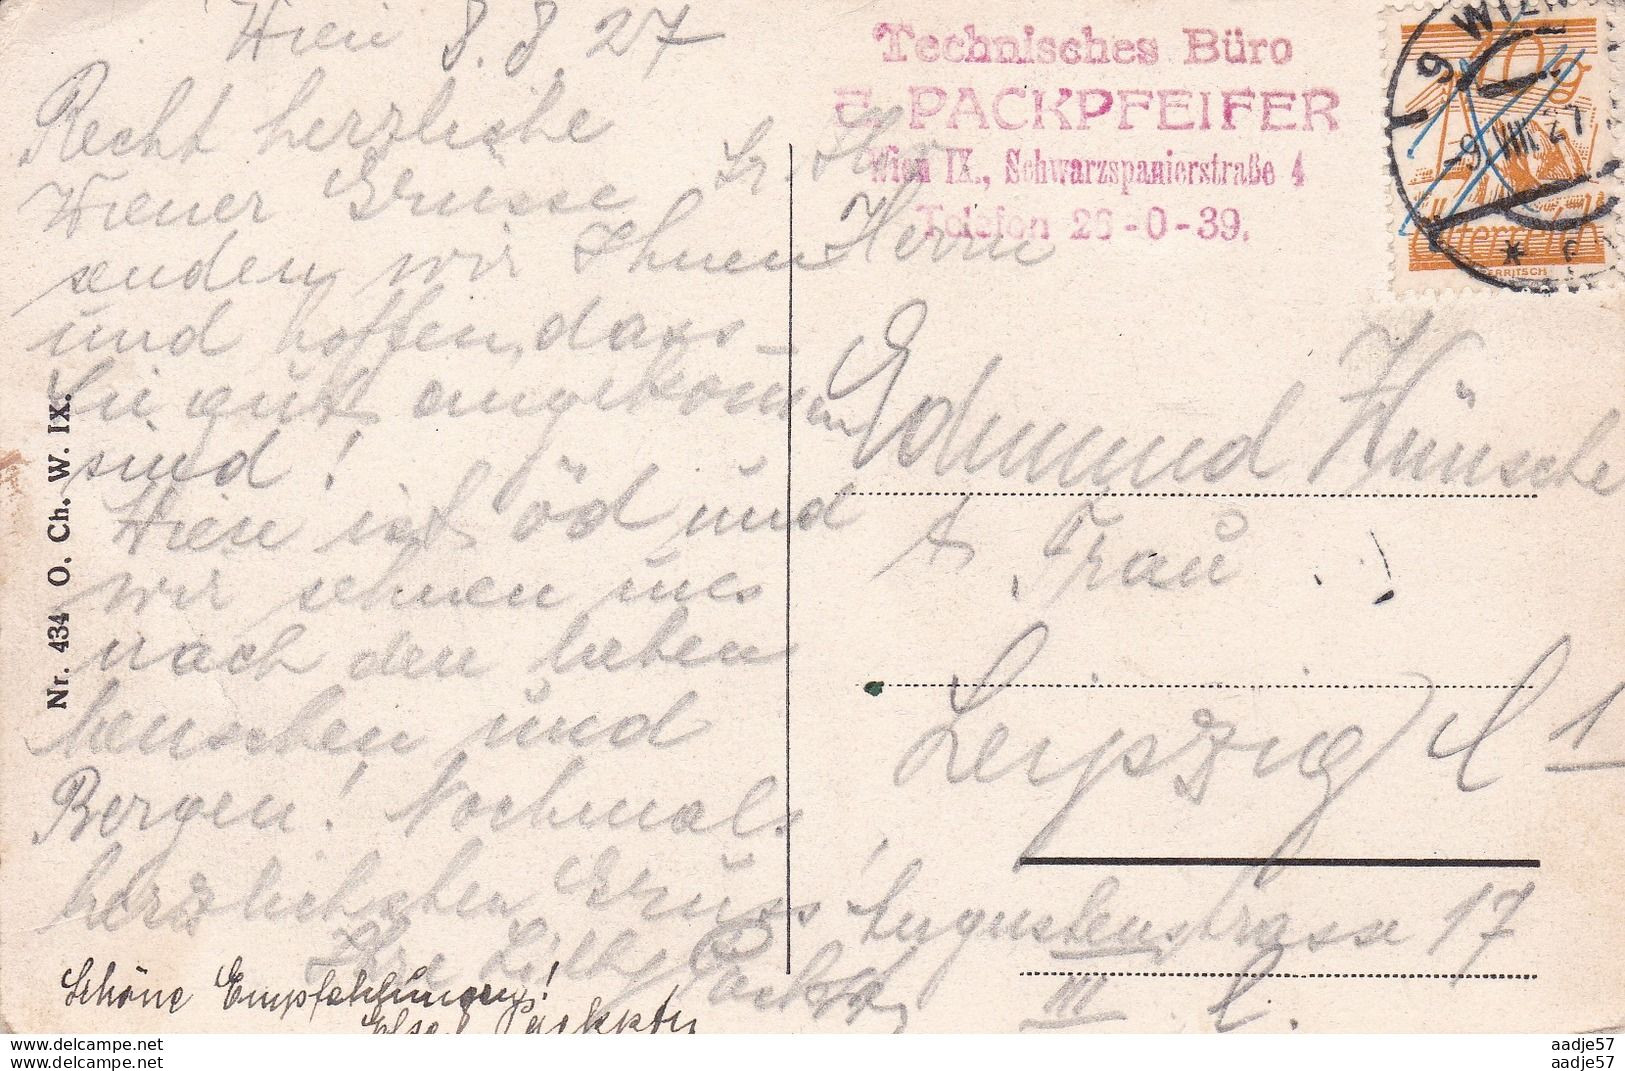 Wien 8.8.27
Recht herzliche
Wiener Grüsse
senden wir Ihnen
und hoffen, dass
Sie gut angekommen
sind!
Wien ist öd und
wir sehnen uns
nach den lieben
Menschen und
Bergen! Nochmals
herzlichsten Gruss
Ihre Lilly
Schöne Empfehlungen!
Else
Nr. 434 O. Ch. W. IX.
Technisches Büro
E. PACKPFEIFER
Wien IX., Schwarzspanierstraße 4
Telefon 26-0-39.
Sr. Hw.
Herrn
Edmund Wünsche
& Frau
Leipzig C 1
Augustenstrasse 17
III l.
9 WIEN
-9.VIII.27
10 g
Österreich
aadje57
aadje57